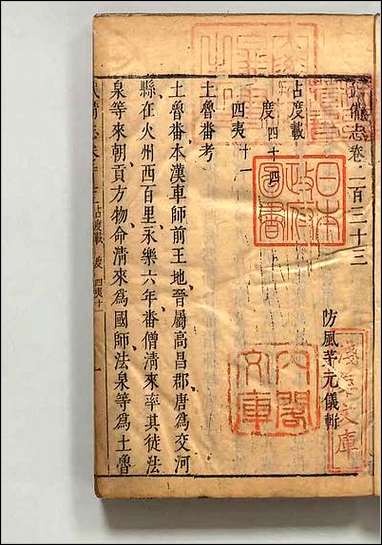 武備志卷二百三十三
防風茅元儀輯
占度載
度四十四
四夷十一
土魯番考
土魯番本漢車師前王地晉屬高昌郡唐爲交河
縣在火州西百里永樂六年番僧清來率其徒法
泉等來朝貢方物命清來爲國師法泉等爲土魯
占度載 度 四夷十一
日本
政府
圖書
內閣
文庫
淺草文庫